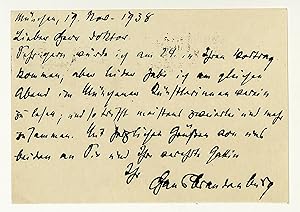 München, 19. Nov. 1938
Lieber Herr Doktor.
Sehr gern würde ich am 24. in Ihren Vortrag
kommen, aber leider habe ich am gleichen
Abend im Münchener Künstlerinnenverein
zu lesen, und so trifft meistens zweierlei und mehr
zusammen. Mit herzlichen Grüßen von uns
beiden an Sie und Ihre verehrte Gattin
Ihr
Hans Brandenburg